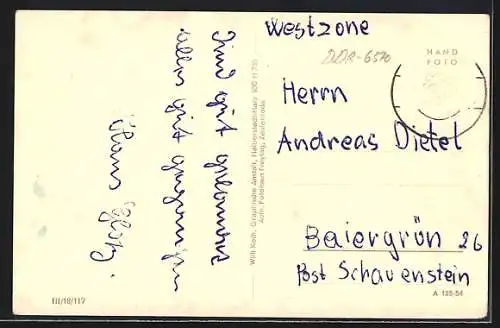 Westzone
DDR-6570
HAND
FOTO
Herrn
Andreas Dietel
Baiergrün 26
Post Schauenstein
Sind gut
alles gut gegangen
Hans
Willi Koch, Graphische Anstalt, Halberstadt/Harz
Aufn. Fotohaus Freytag, Zeulenroda
III/18/117
A 135-54